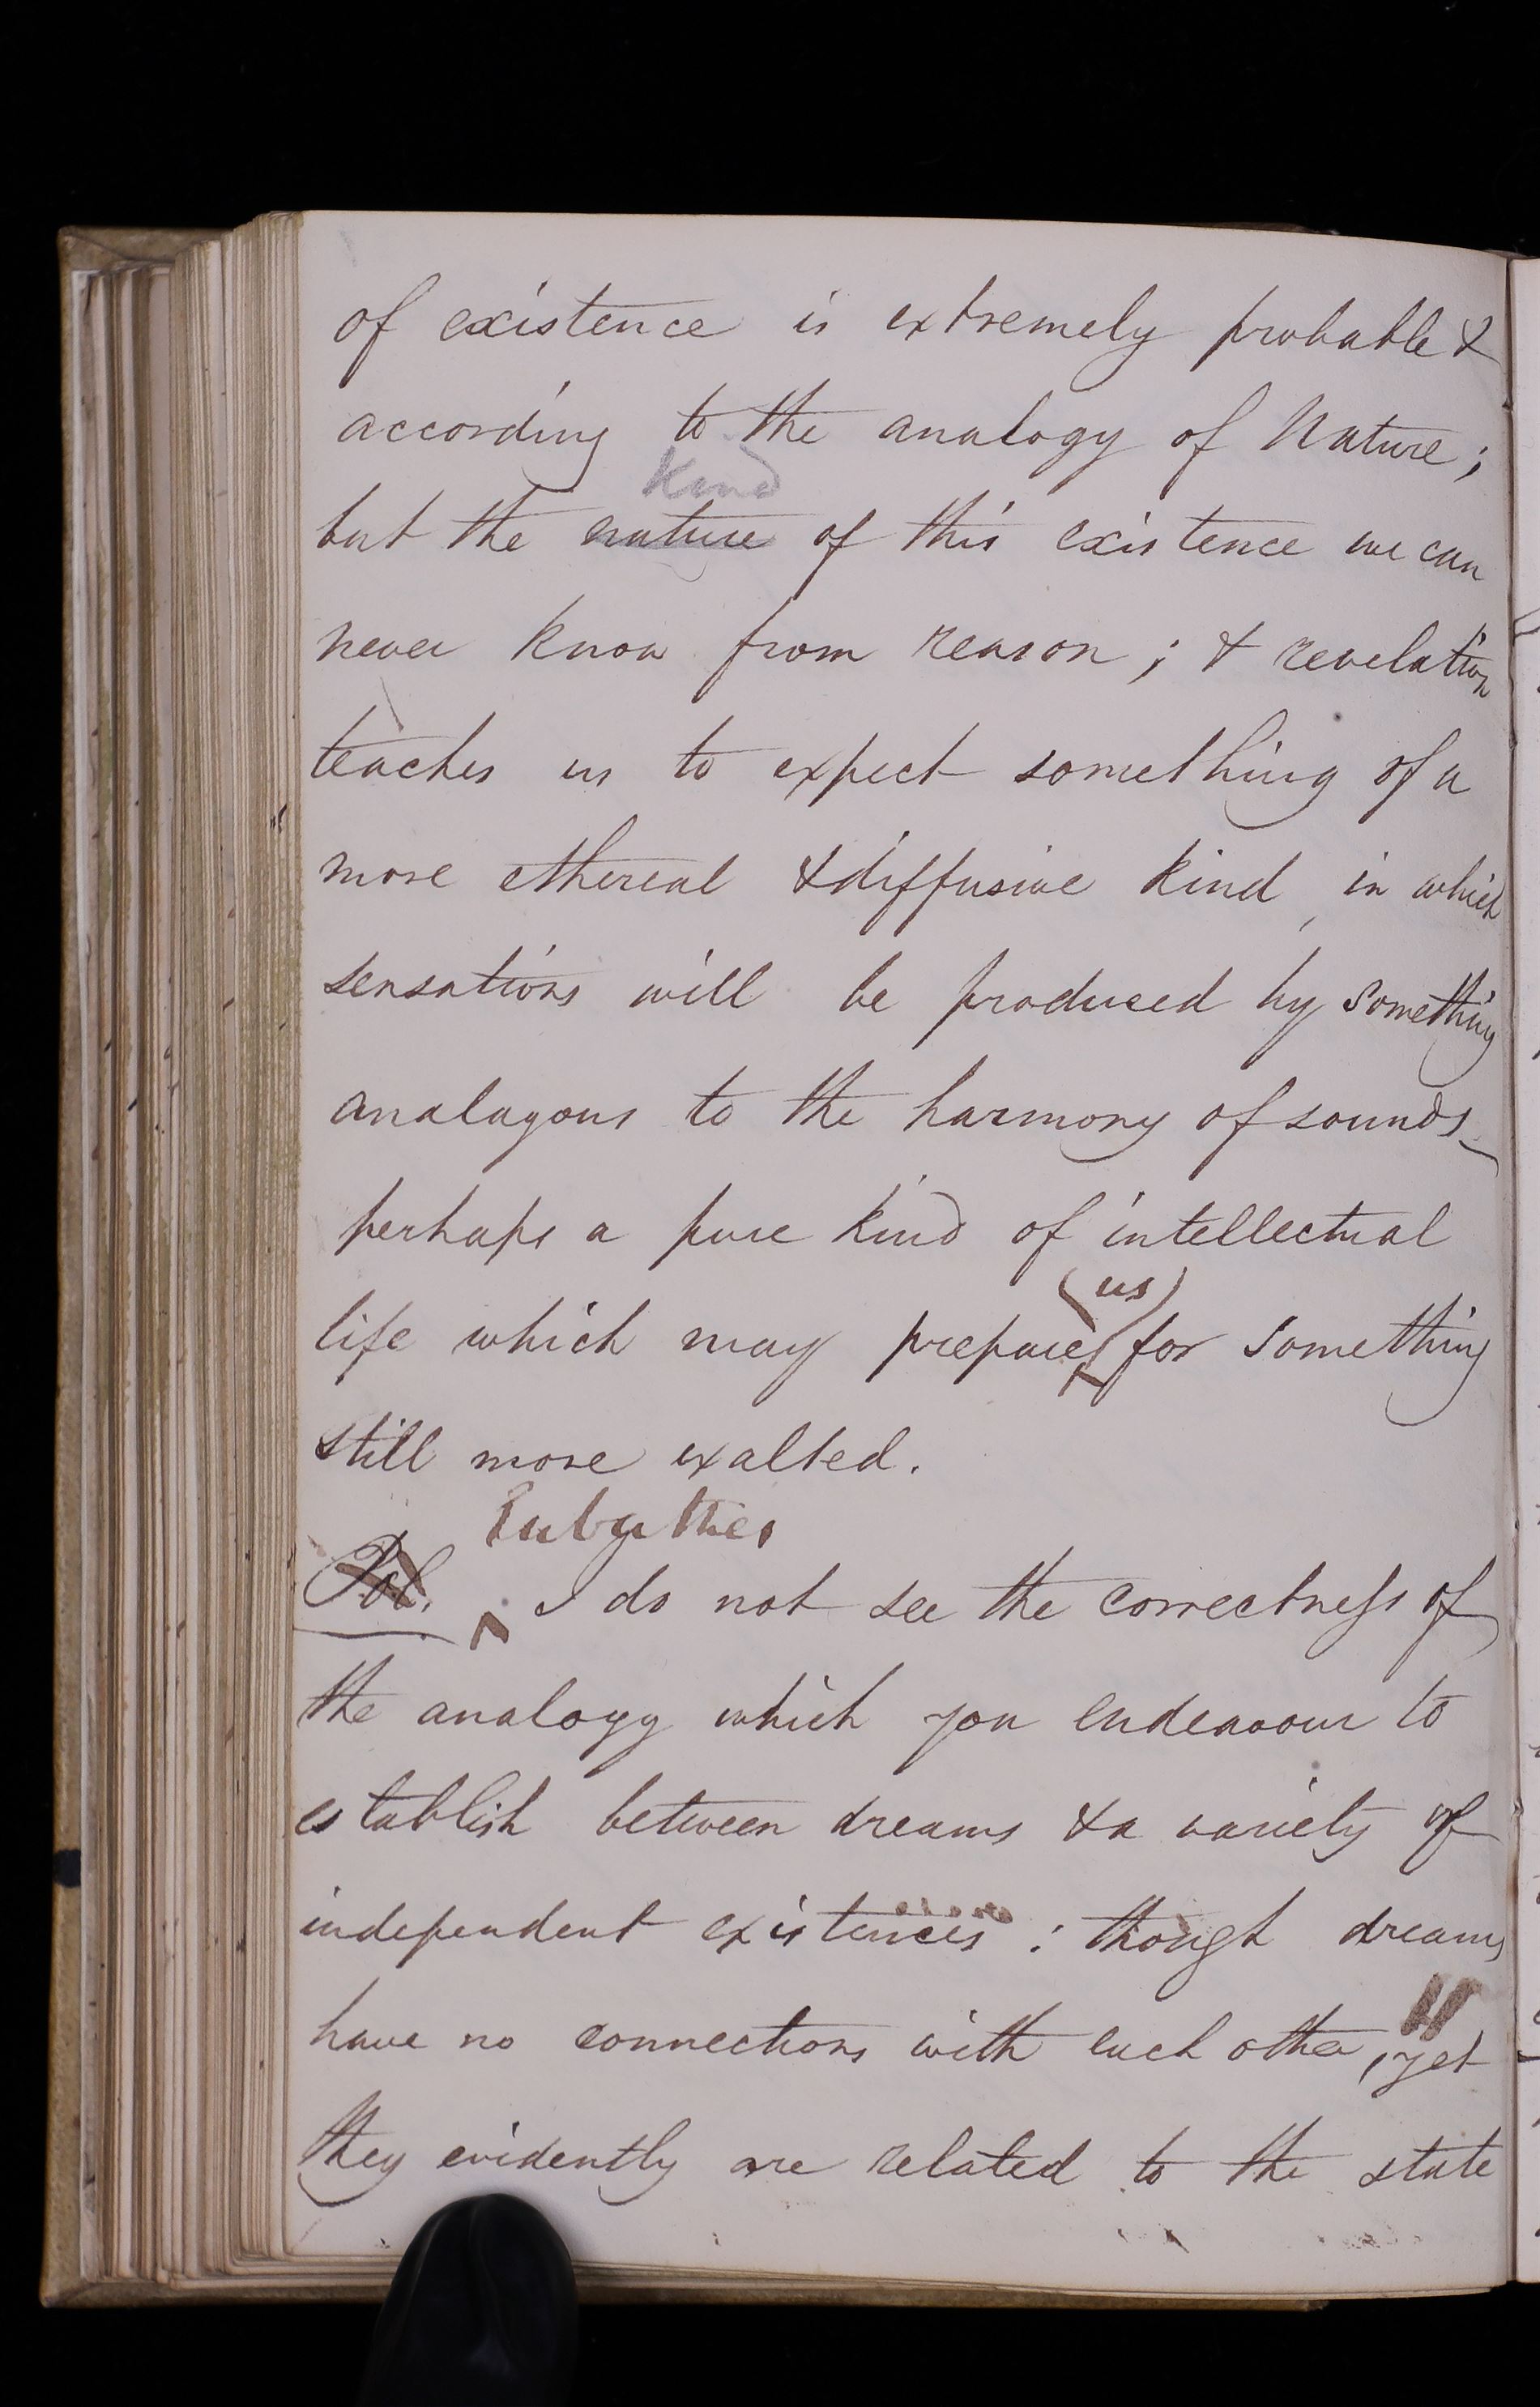 of existence is extremely probable &
according to the analogy of Nature;
kind
but the nature of this existence we can
never know from reason; & revelation
teaches us to expect something of a
more ethereal & diffusive kind, in which
sensations will be produced by something
analagous to the harmony of sounds
perhaps a pure kind of intellectual
(us)
life which may prepare for something
still more exalted.
Eubathes
Pol. I do not see the correctness of
the analogy which you endeavour to
establish between dreams & a variety of
independent existences: though dreams
have no connections with each other, yet
they evidently are related to the state